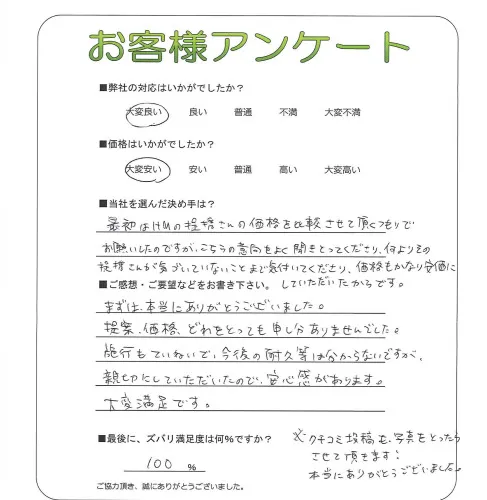 お客様アンケート
■弊社の対応はいかがでしたか？
大変良い 良い 普通 不満 大変不満
■価格はいかがでしたか？
大変安い 安い 普通 高い 大変高い
■当社を選んだ決め手は？
最初はHMの提携さんの価格を比較させて頂くつもりで
お願いしたのですが、こちらの意向をよく聞きとってくださり、何よりその
提携さんが気づいていないことまで気付いてくださり、価格もかなり安価に
していただいたからです。
■ご感想・ご要望などをお書き下さい。
まずは、本当にありがとうございました。
提案、価格、どれをとっても申し分ありませんでした。
施行もていねいで、今後の耐久等は分からないですが、
親切にしていただいたので、安心感があります。
大変満足です。
■最後に、ズバリ満足度は何%ですか？
100 %
※クチコミ投稿も、写真をとったら
させて頂きます！
本当にありがとうございました。
ご協力頂き、誠にありがとうございました。